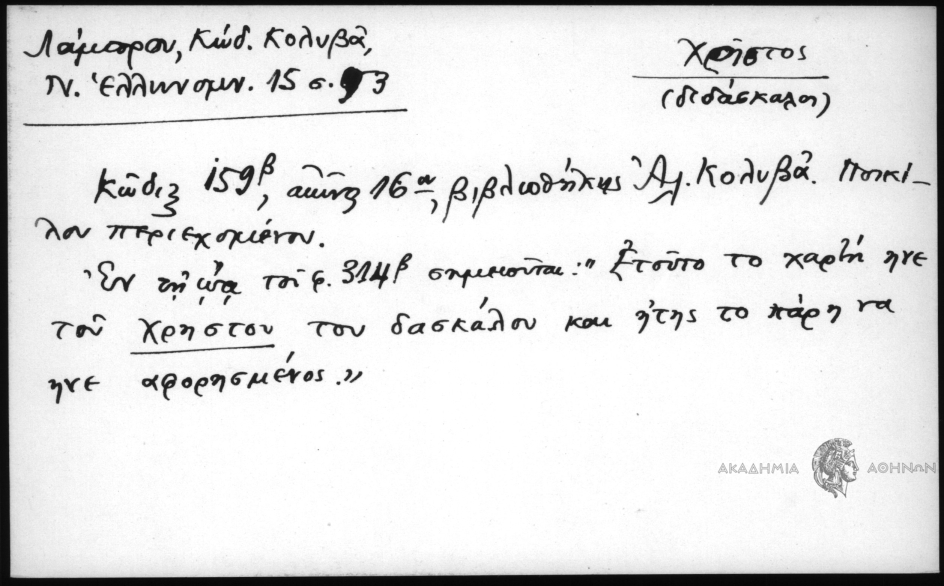 Λάμπρου, Κώδ. Κολυβᾶ,
Ν. Ἑλληνομν. 15 σ.
Χρῆστος
(διδάσκαλος)
Κῶδιξ 159β, αἰῶνος 16ου, βιβλιοθήκης Ἀλ. Κολυβᾶ. Ποικί-
λου περιεχομένου.
Ἐν τῇ ᾤᾳ τοῦ φ. 314β σημειοῦται: "Ἐτοῦτο το χαρτή ηνε
τοῦ Χρήστου του δασκάλου και ἠτης το πάρη να
ηνε αφορησμένος."
ΑΚΑΔΗΜΙΑ ΑΘΗΝΩΝ